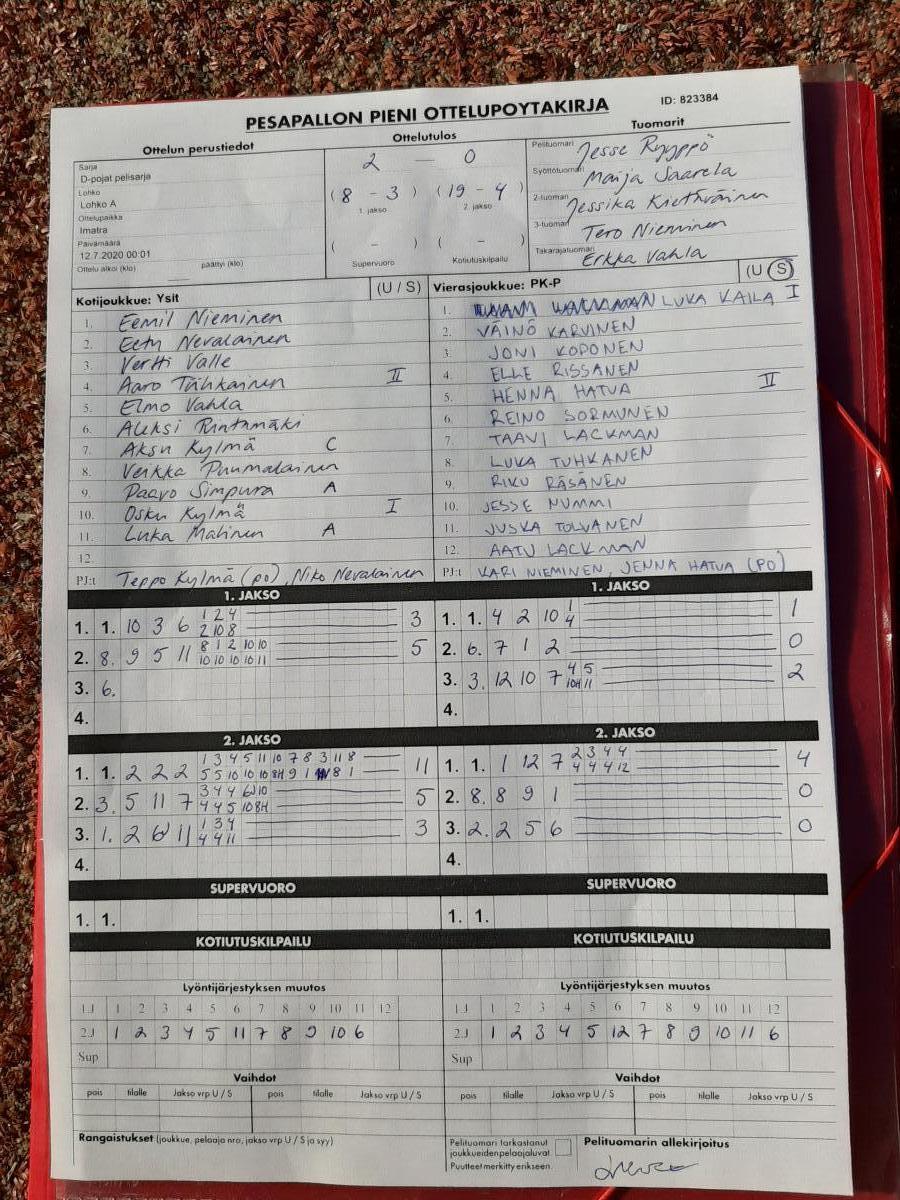 PESAPALLON PIENI OTTELUPOYTAKIRJA ID: 823384
Ottelun perustiedot
Sarja
D-pojat pelisarja
Lohko
Lohko A
Ottelupaikka
Imatra
Päivämäärä
12.7.2020 00:01
Ottelu alkoi (klo) päättyi (klo)
Ottelutulos
2 - 0
(8 - 3) (19 - 4)
1. jakso 2. jakso
( - ) ( - )
Supervuoro Kotiutuskilpailu
Tuomarit
Pelituomari Jesse Ryyppö
Syöttötuomari Maija Saarela
2-tuomari Jessika Kiethväinen
3-tuomari Tero Nieminen
Takarajatuomari Erkka Vahla
Kotijoukkue: Ysit (U / S)
1. Eemil Nieminen
2. Eetu Nevalainen
3. Vertti Valle
4. Aaro Tähkainen II
5. Elmo Vahla
6. Aleksi Rintamäki
7. Aksu Kylmä C
8. Veikka Puumalainen
9. Paavo Simpura A
10. Osku Kylmä I
11. Luka Malinen A
12.
PJ:t Teppo Kylmä (po), Niko Nevalainen
Vierasjoukkue: PK-P (U S)
1. LUKA KAILA I
2. VÄINÖ KARVINEN
3. JONI KOPONEN
4. ELLE RISSANEN
5. HENNA HATVA II
6. REINO SORMUNEN
7. TAAVI LACKMAN
8. LUKA TUHKANEN
9. RIKU RÄSÄNEN
10. JESSE NUMMI
11. JUSKA TOLVANEN
12. AATU LACKMAN
PJ:t KARI NIEMINEN, JENNA HATVA (PO)
1. JAKSO
1. 1. 10 3 6 1 2 4 3
2 10 8
2. 8. 9 5 11 8 1 2 10 10 5
10 10 10 10 11
3. 6.
4.
1. JAKSO
1. 1. 4 2 10 1 1
4
2. 6. 7 1 2 0
3. 3. 12 10 7 4 5 2
10H 11
4.
2. JAKSO
1. 1. 2 2 2 1 3 4 5 11 10 7 8 3 11 8 11
5 5 10 10 10 8H 9 1 8 1
2. 3. 5 11 7 3 4 4 6 10 5
4 4 5 10 8H
3. 1. 2 6 11 1 3 4 3
4 4 11
4.
2. JAKSO
1. 1. 1 12 7 2 3 4 4 4
4 4 4 12
2. 8. 8 9 1 0
3. 2. 2 5 6 0
4.
SUPERVUORO
1. 1.
SUPERVUORO
1. 1.
KOTIUTUSKILPAILU
KOTIUTUSKILPAILU
Lyöntijärjestyksen muutos
1.J 1 2 3 4 5 6 7 8 9 10 11 12
2.J 1 2 3 4 5 11 7 8 9 10 6
Sup
Lyöntijärjestyksen muutos
1.J 1 2 3 4 5 6 7 8 9 10 11 12
2.J 1 2 3 4 5 12 7 8 9 10 11 6
Sup
Vaihdot
pois tilalle Jakso vrp U / S pois tilalle Jakso vrp U / S
Vaihdot
pois tilalle Jakso vrp U / S pois tilalle Jakso vrp U / S
Rangaistukset (joukkue, pelaaja nro, jakso vrp U / S ja syy)
Pelituomari tarkastanut
joukkueiden pelaajaluvat
Puutteet merkitty erikseen.
Pelituomarin allekirjoitus